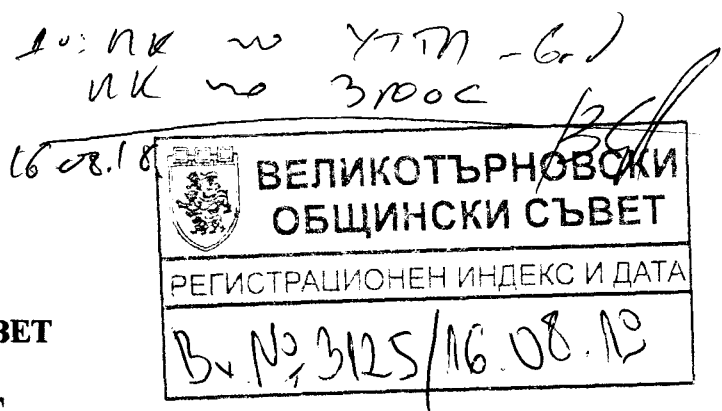 ПК по УТТП
ПК по ЗРООС
16.08.18
ВЕЛИКОТЪРНОВСКИ
ОБЩИНСКИ СЪВЕТ
РЕГИСТРАЦИОНЕН ИНДЕКС И ДАТА
Вх. № 3125/16.08.18
ВЕТ